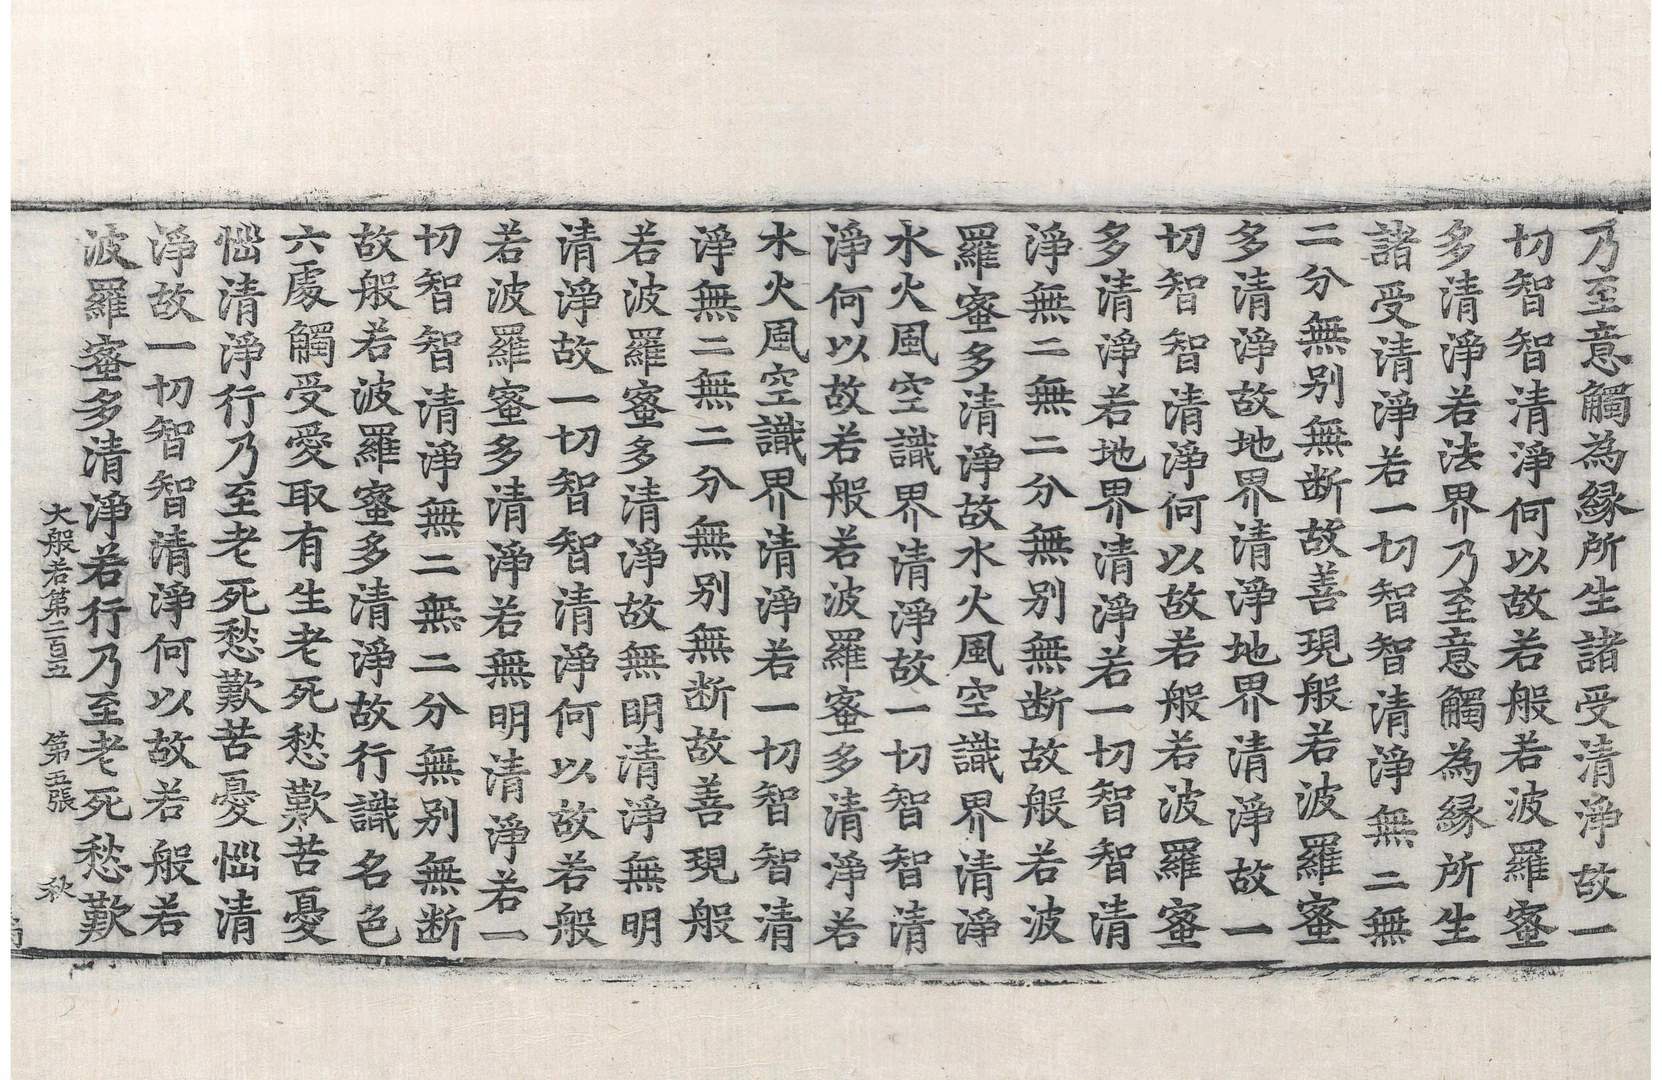 乃至意觸為縁所生諸受清淨故一
切智智清淨何以故若般若波羅蜜
多清淨若法界乃至意觸為縁所生
諸受清淨若一切智智清淨無二無
二分無别無断故善現般若波羅蜜
多清淨故地界清淨地界清淨故一
切智智清淨何以故若般若波羅蜜
多清淨若地界清淨若一切智智清
淨無二無二分無别無断故般若波
羅蜜多清淨故水火風空識界清淨
水火風空識界清淨故一切智智清
淨何以故若般若波羅蜜多清淨若
水火風空識界清淨若一切智智清
淨無二無二分無别無断故善現般
若波羅蜜多清淨故無明清淨無明
清淨故一切智智清淨何以故若般
若波羅蜜多清淨若無明清淨若一
切智智清淨無二無二分無别無断
故般若波羅蜜多清淨故行識名色
六處觸受愛取有生老死愁歎苦憂
惱清淨行乃至老死愁歎苦憂惱清
淨故一切智智清淨何以故若般若
波羅蜜多清淨若行乃至老死愁歎
大般若第二百五 第五張 秋